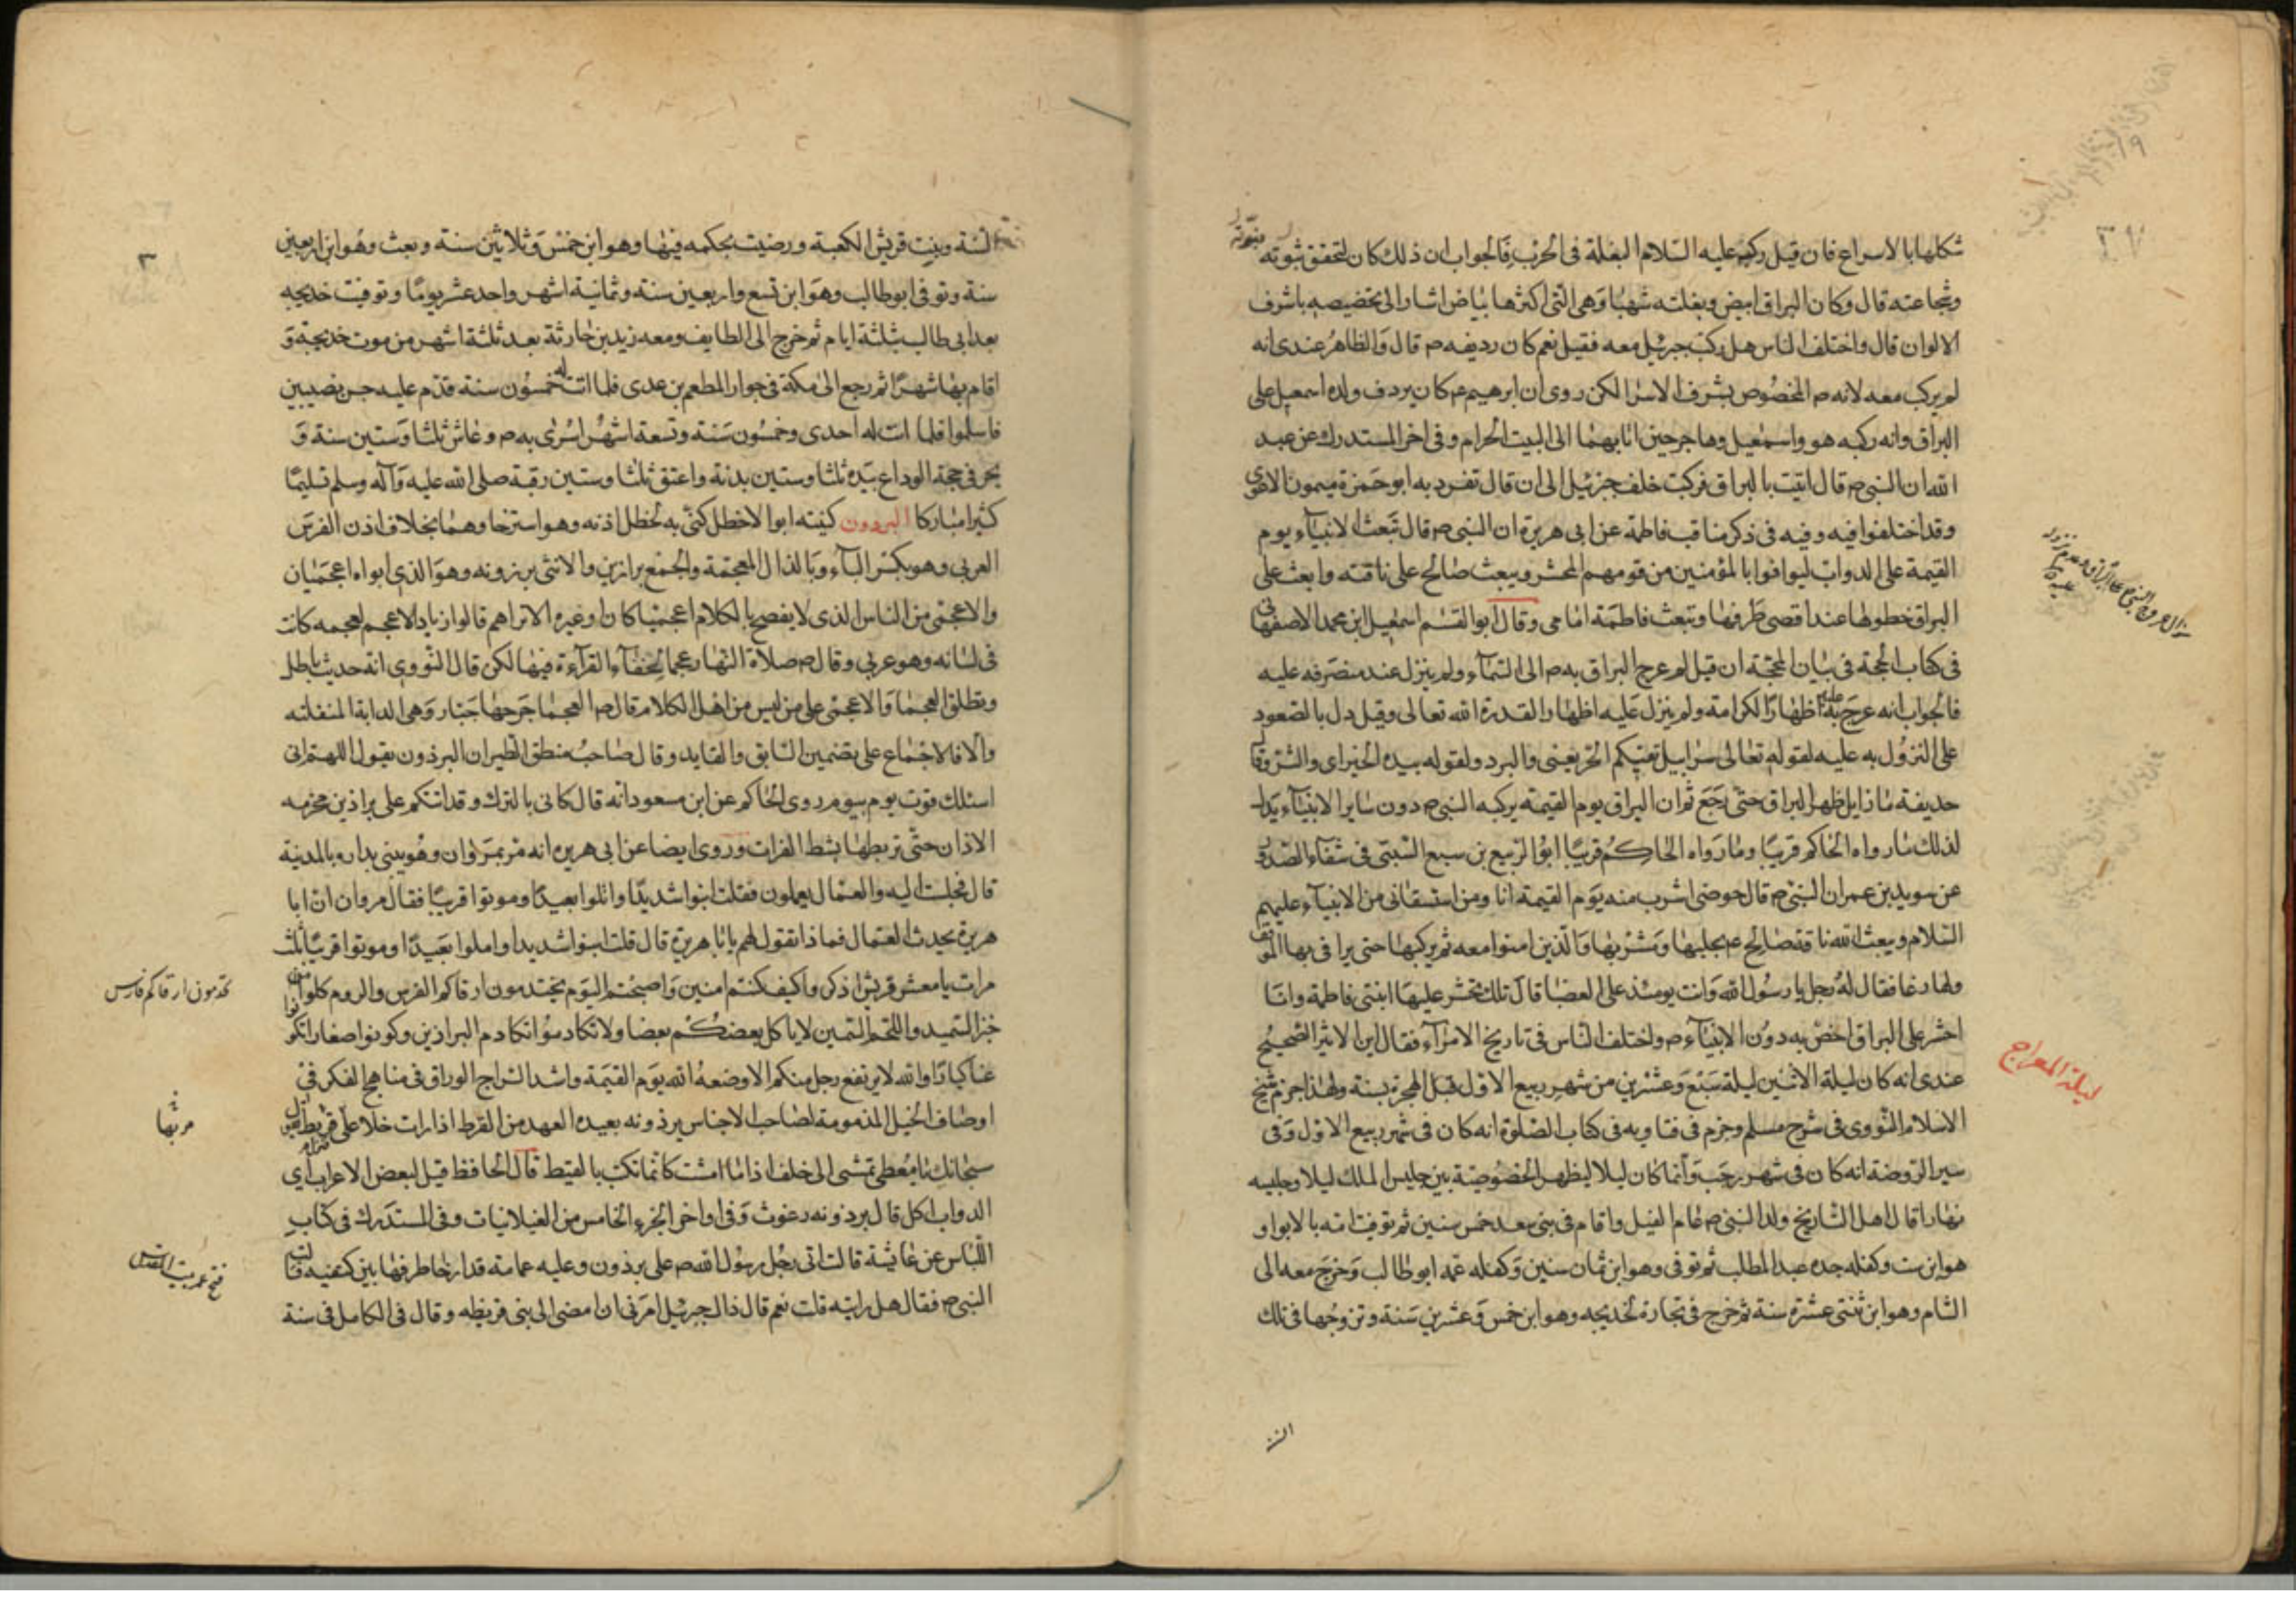 شكلها بالاسراع فان قيل ركب عليه السلام البغلة فى الحرب فالجواب ان ذلك كان لتحقق نبوته
وشجاعته قال وكان البراق ابيض وبغلته شهبا وهى التى اكثرها بياض اشارا الى تخصيصه باشرف
الالوان قال واختلف الناس هل ركب جبرئيل معه فقيل نعم كان رديفه ص قال والظاهر عندى انه
لم يركب معه لانه ص المخصوص بشرف الاسرا لكن روى ان ابرهيم ع كان يردف ولده اسمعيل على
البراق وانه ركبه هو واسمعيل وهاجر حين اتا بهما الى البيت الحرام وفى اخر المستدرك عن عبد
الله ان النبى ص قال اتيت بالبراق فركبت خلف جبرئيل الى ان قال تفرد به ابو حمزة ميمون الاعور
وقد اختلفوا فيه وفيه فى ذكر مناقب فاطمة عن ابى هريرة ان النبى ص قال تبعث الانبياء يوم
القيمة على الدواب ليوافوا بالمؤمنين من قومهم المحشر ويبعث صالح على ناقته وابعث على
البراق خطوها عند اقصى طرفها وتبعث فاطمة امامى وقال ابو القسم اسمعيل ابن محمد الاصفهانى
فى كتاب الحجة فى بيان المحجة ان قيل لم عرج البراق به ص الى السماء ولم ينزل عند منصرفه عليه
فالجواب انه عرج به عليه اظهارا لكرامة ولم ينزل عليه اظهارا لقدرة الله تعالى وقيل دل بالصعود
على النزول به عليه لقوله تعالى سرابيل تقيكم الحر يعنى والبرد ولقوله بيده الخير اى والشر وقال
حذيفة ما زايل ظهر البراق حتى رجع ثم ان البراق يوم القيمة يركبه النبى ص دون ساير الانبياء يدل
لذلك ما رواه الحاكم قريبا وما رواه الحاكم قريبا ابو الربيع بن سبع السبتى فى شفاء الصدور
عن سويد بن عمر ان النبى ص قال حوضى اشرب منه يوم القيمة انا ومن استسقانى من الانبياء عليهم
السلام ويبعث الله ناقة صالح ع يحلبها ويشربها والذين امنوا معه ثم يركبها حتى يرافى بها الموقف
ولها رغا فقال له رجل يا رسول الله وانت يومئذ على العضبا قال تلك تحشر عليها ابنتى فاطمة وانا
احشر على البراق اخص به دون الانبياء ص واختلف الناس فى تاريخ الاسراء فقال ابن الاثير الصحيح
عندى انه كان ليلة الاثنين ليلة سبع وعشرين من شهر ربيع الاول قبل الهجرة بسنة ولهذا جزم شيخ
الاسلام النووى فى شرح مسلم وجزم فى فتاويه فى كتاب الصلوة انه كان فى شهر ربيع الاول وفى
سير الروضة انه كان فى شهر رجب وانما كان ليلا ليظهر الخصوصية بين جليس الملك ليلا وجليسه
نهارا قال اهل التاريخ ولد النبى ص عام الفيل واقام فى بنى سعد خمس سنين ثم توفيت امه بالابوا و
هو ابن ست وكفله جده عبد المطلب ثم توفى وهو ابن ثمان سنين وكفله عمه ابو طالب وخرج معه الى
الشام وهو ابن ثنتى عشرة سنة ثم خرج فى تجارة لخديجه وهو ابن خمس وعشرين سنة وتزوجها فى تلك
ليلة المعراج
السنة وبنت قريش الكعبة ورضيت بحكمه فيها وهو ابن خمس وثلاثين سنة وبعث وهو ابن اربعين
سنة وتوفى ابو طالب وهو ابن تسع واربعين سنة وثمانية اشهر واحد عشر يوما وتوفيت خديجه
بعد ابى طالب بثلثة ايام ثم خرج الى الطايف ومعه زيد بن حارثة بعد ثلثة اشهر من موت خديجة و
اقام بها شهرا ثم رجع الى مكة فى جوار المطعم بن عدى فلما اتت له خمسون سنة قدم عليه جن نصيبين
فاسلموا فلما اتت له احدى وخمسون سنة وتسعة اشهر اسرى به ص وعاش ثلثا وستين سنة و
نحر فى حجة الوداع بيده ثلثا وستين بدنة واعتق ثلثا وستين رقبة صلى الله عليه وآله وسلم تسليما
كثيرا مباركا البرذون كنيته ابو الاخطل كنى به لخطل اذنه وهو استرخاوهما بخلاف اذن الفرس
العربى وهو بكسر الباء وبالذال المعجمة والجمع براذين والانثى برذونه وهو الذى ابواه اعجميان
والاعجمى من الناس الذى لا يفصح بالكلام اعجميا كان او غيره الا تراهم قالوا زياد الاعجم لعجمه كانت
فى لسانه وهو عربى وقال ص صلاة النهار عجما لخفاء القراءة فيها لكن قال النووى انه حديث باطل
ويطلق العجما والاعجمى على من ليس من اهل الكلام قال ص العجما جرحها جبار وهى الدابة المنفلته
والا فالاجماع على تضمين السايق والقايد وقال صاحب منطق الطير ان البرذون يقول اللهم انى
اسئلك قوت يوم بيوم روى الحاكم عن ابن مسعود انه قال كانى بالترك وقد اتتكم على براذين مخرمه
الاذان حتى تربطها بشط الفرات وروى ايضا عن ابى هريره انه مر بمروان وهو يبنى بداره بالمدنية
قال فجلست اليه والعمال يعملون فقلت ابنوا شديدا واملوا بعيدا وموتوا قريبا فقال مروان ان ابا
هريرة يحدث العمال فماذا تقول لهم يا ابا هريرة قال قلت ابنوا شديدا واملوا بعيدا وموتوا قريبا ثلث
مرات يا معشر قريش اذكروا كيف كنتم امنين واصبحتم اليوم تختدمون ارقاكم الفرس والروم كلوا
خبز السميد واللحم السمين لا ياكل بعضكم بعضا ولا تكادموا تكادم البراذين وكونوا صغارا تكونوا
غدا كبارا والله لا يرتفع رجل منكم الا وضعه الله يوم القيمة وانشد السراج الوراق فى مناهج الفكر فى
اوصاف الخيل المذمومة لصاحب الاجناس برذونه بعيده العهد من القرط اذا رات خلا على
تمشى الى خلف اذا ما مشت كانما تكتب بالقبط قال الحافظ قيل لبعض الاعراب اى
الدواب اكل قال برذونه رغوث وفى اواخر الجزء الخامس من الغيلانيات وفى المستدرك فى كتاب
اللباس عن عائشة قالت اتى رجل رسول الله ص على برذون وعليه عمامة قد ارخا طرفها بين كتفيه
النبى ص فقال هل رايته قلت نعم قال ذاك جبرئيل امرنى ان امضى الى بنى قريظه وقال فى الكامل فى سنة
فتح عمر بيت المقدس